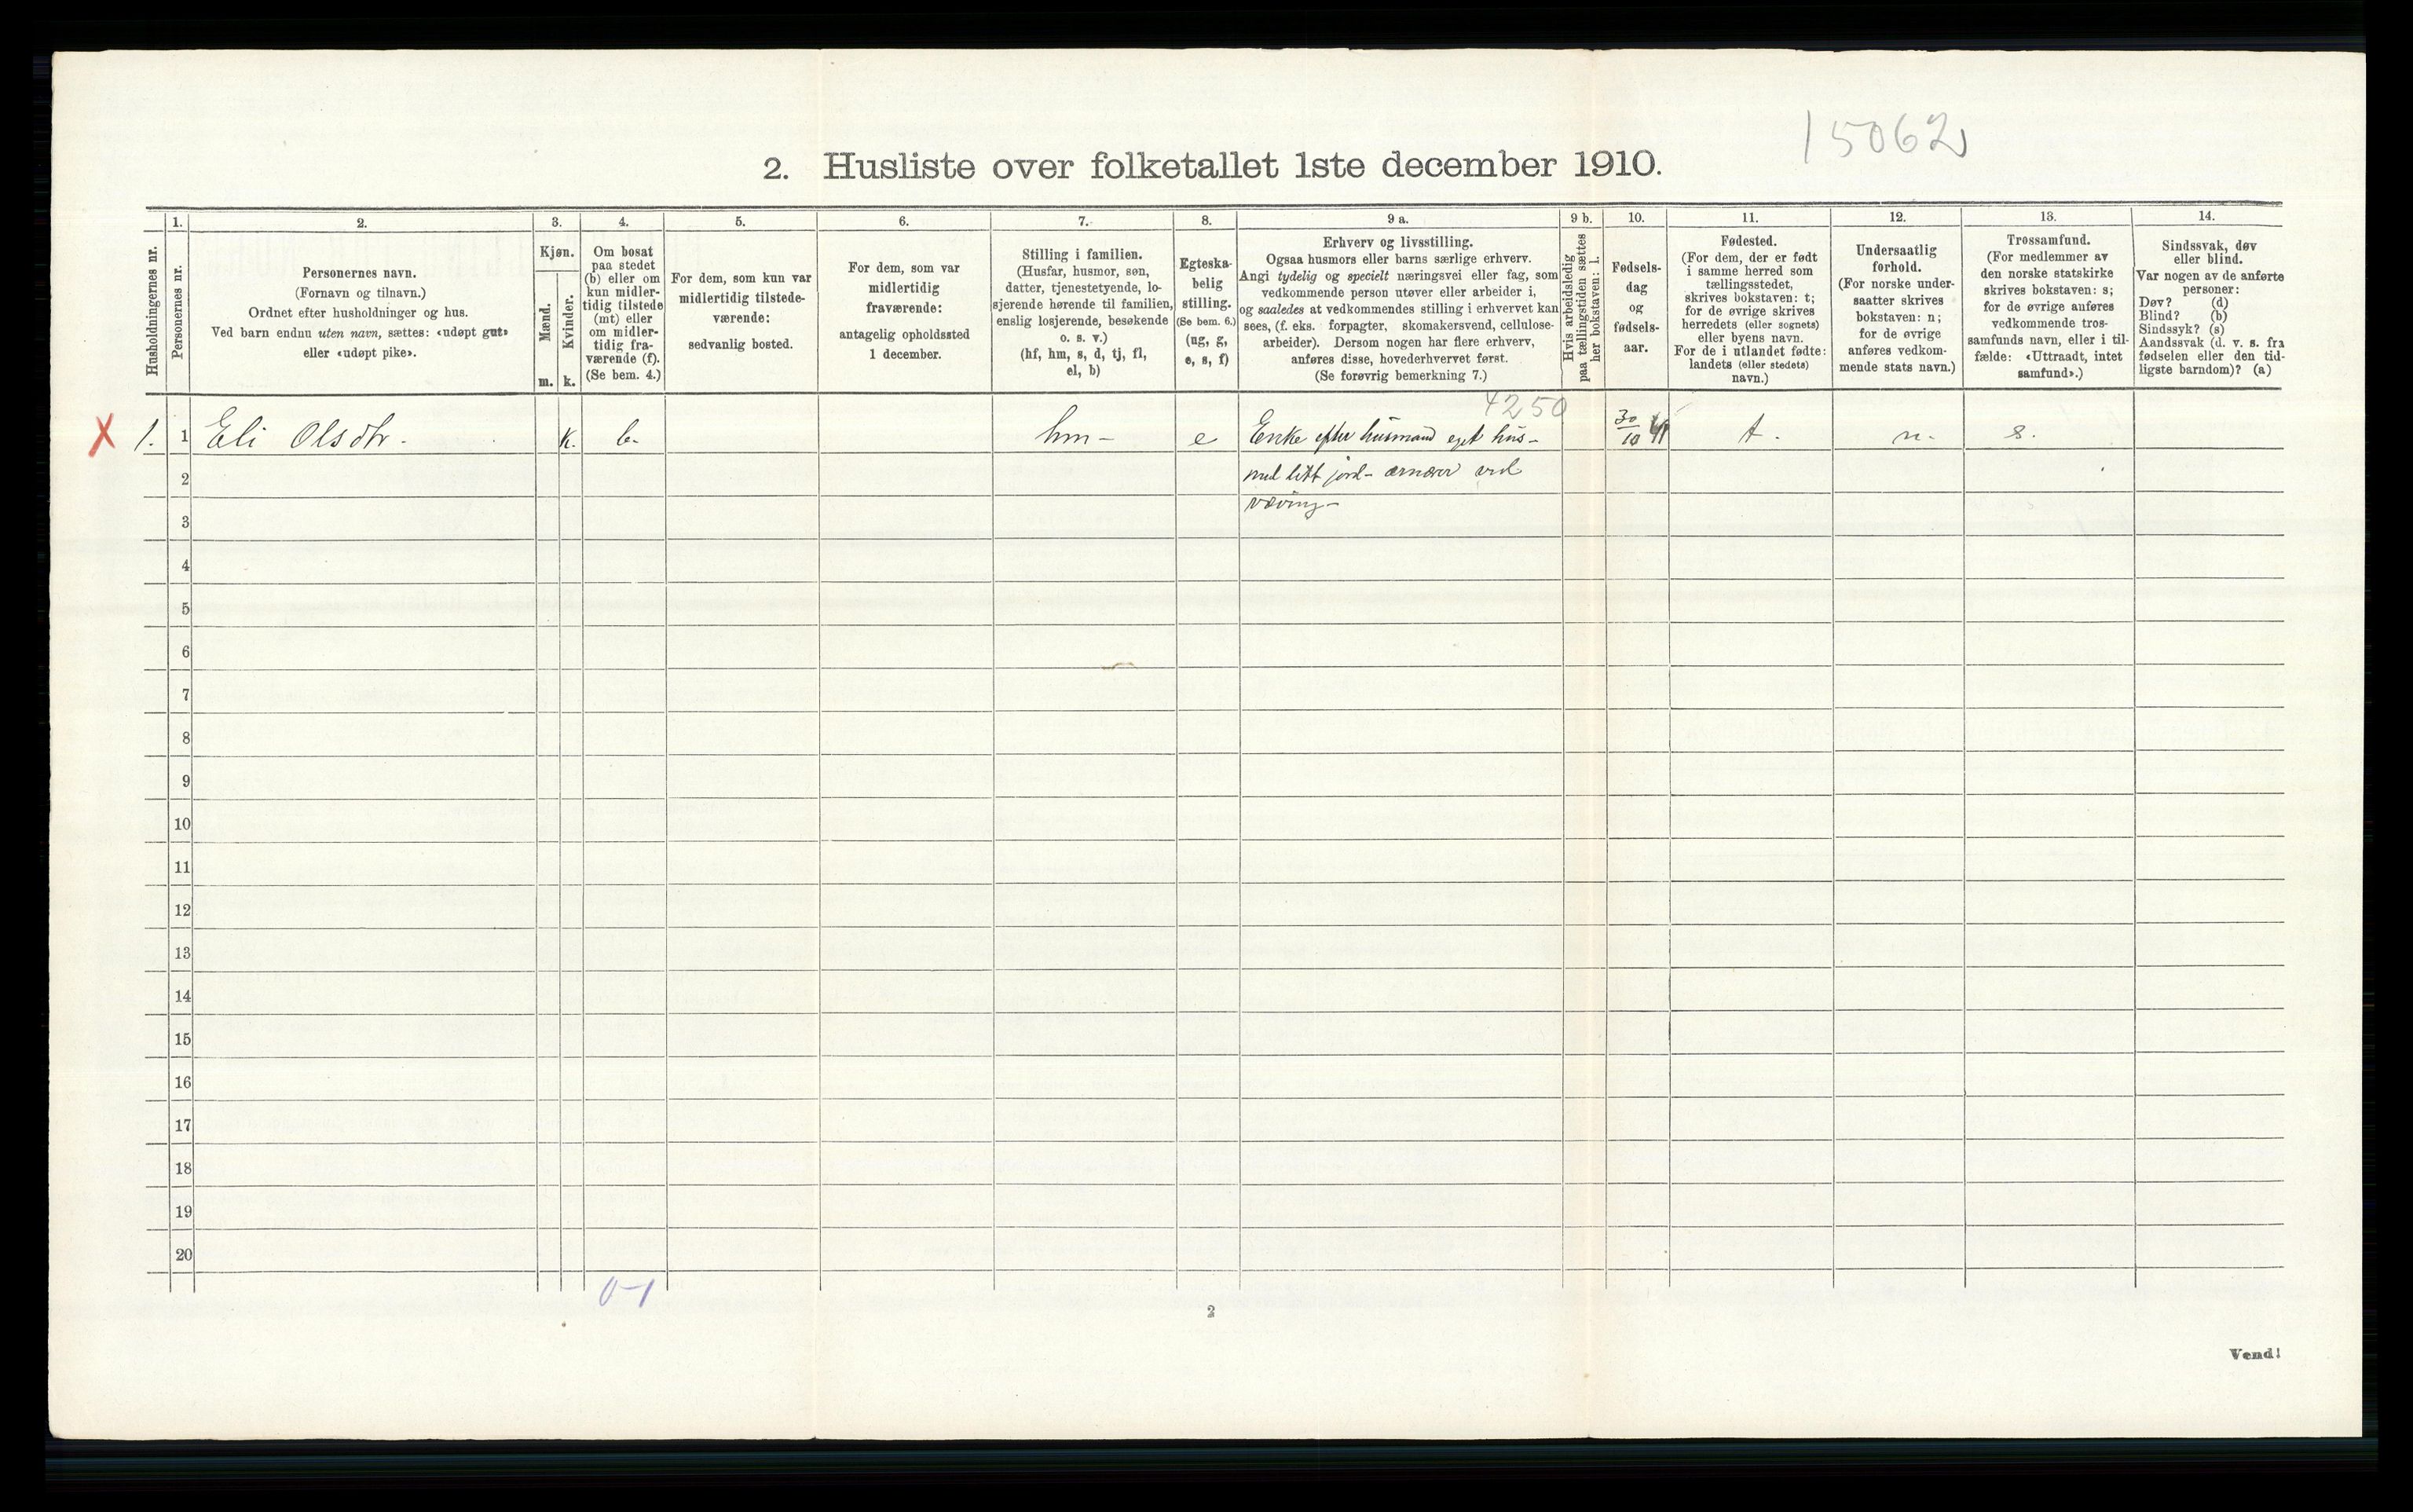 15062
2. Husliste over folketallet 1ste december 1910.
1. 2. 3. 4. 5. 6. 7. 8. 9 a. 9 b. 10. 11. 12. 13. 14.
Husholdningernes nr.
Personernes nr.
Personernes navn.
(Fornavn og tilnavn.)
Ordnet efter husholdninger og hus.
Ved barn endnu uten navn, sættes: «udøpt gut»
eller «udøpt pike».
Kjøn.
Mænd.
Kvinder.
m. k.
Om bosat
paa stedet
(b) eller om
kun midler-
tidig tilstede
(mt) eller
om midler-
tidig fra-
værende (f).
(Se bem. 4.)
For dem, som kun var
midlertidig tilstede-
værende:
sedvanlig bosted.
For dem, som var
midlertidig
fraværende:
antagelig opholdssted
1 december.
Stilling i familien.
(Husfar, husmor, søn,
datter, tjenestetyende, lo-
sjerende hørende til familien,
enslig losjerende, besøkende
o. s. v.)
(hf, hm, s, d, tj, fl,
el, b)
Egteska-
belig
stilling.
(Se bem. 6.)
(ug, g,
e, s, f)
Erhverv og livsstilling.
Ogsaa husmors eller barns særlige erhverv.
Angi tydelig og specielt næringsvei eller fag, som
vedkommende person utøver eller arbeider i,
og saaledes at vedkommendes stilling i erhvervet kan
sees, (f. eks. forpagter, skomakersvend, cellulose-
arbeider). Dersom nogen har flere erhverv,
anføres disse, hovederhvervet først.
(Se forøvrig bemerkning 7.)
Hvis arbeidsledig
paa tællingstiden sættes
her bokstaven: l.
Fødsels-
dag
og
fødsels-
aar.
Fødested.
(For dem, der er født
i samme herred som
tællingsstedet,
skrives bokstaven: t;
for de øvrige skrives
herredets (eller sognets)
eller byens navn.
For de i utlandet fødte:
landets (eller stedets)
navn.)
Undersaatlig
forhold.
(For norske under-
saatter skrives
bokstaven: n;
for de øvrige
anføres vedkom-
mende stats navn.)
Trossamfund.
(For medlemmer av
den norske statskirke
skrives bokstaven: s;
for de øvrige anføres
vedkommende tros-
samfunds navn, eller i til-
fælde: «Uttraadt, intet
samfund».)
Sindssvak, døv
eller blind.
Var nogen av de anførte
personer:
Døv? (d)
Blind? (b)
Sindssyk? (s)
Aandssvak (d. v. s. fra
fødselen eller den tid-
ligste barndom)? (a)
4250
X 1. 1 Eli Olsdtr. k. b. hm- e Enke efter husmand eget hus- 30/10 41 t. n. s.
2 med litt jord- ærnærer ved
3 væving-
4
5
6
7
8
9
10
11
12
13
14
15
16
17
18
19
20
0-1
2
Vend!